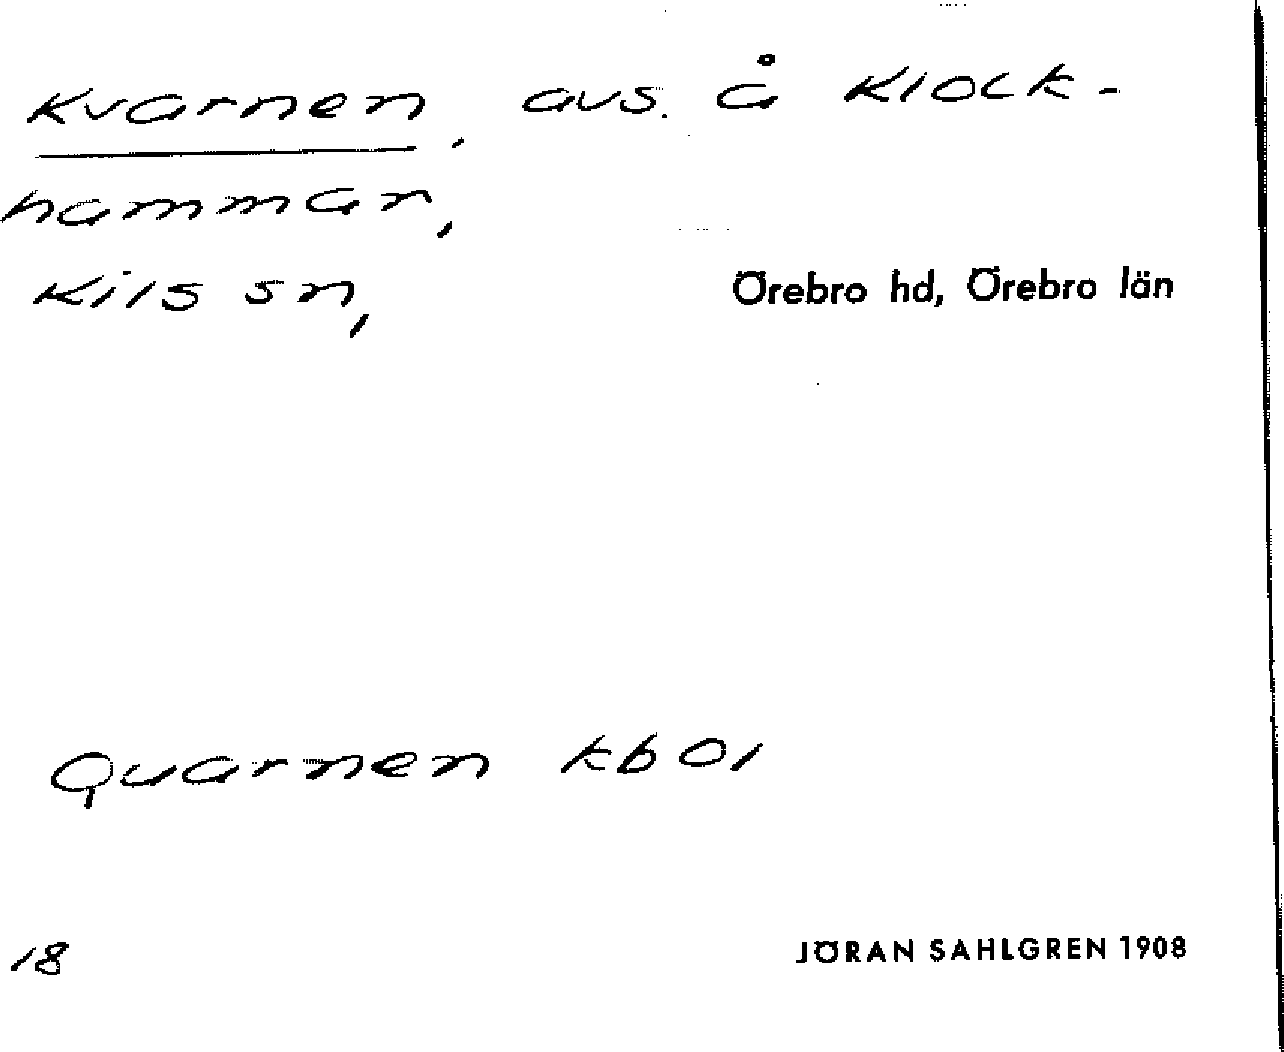 Kvarnen, avs. å Klock-
hammar,
Kils sn, Örebro hd, Örebro län
Quarnen kb 01
18 JÖRAN SAHLGREN 1908